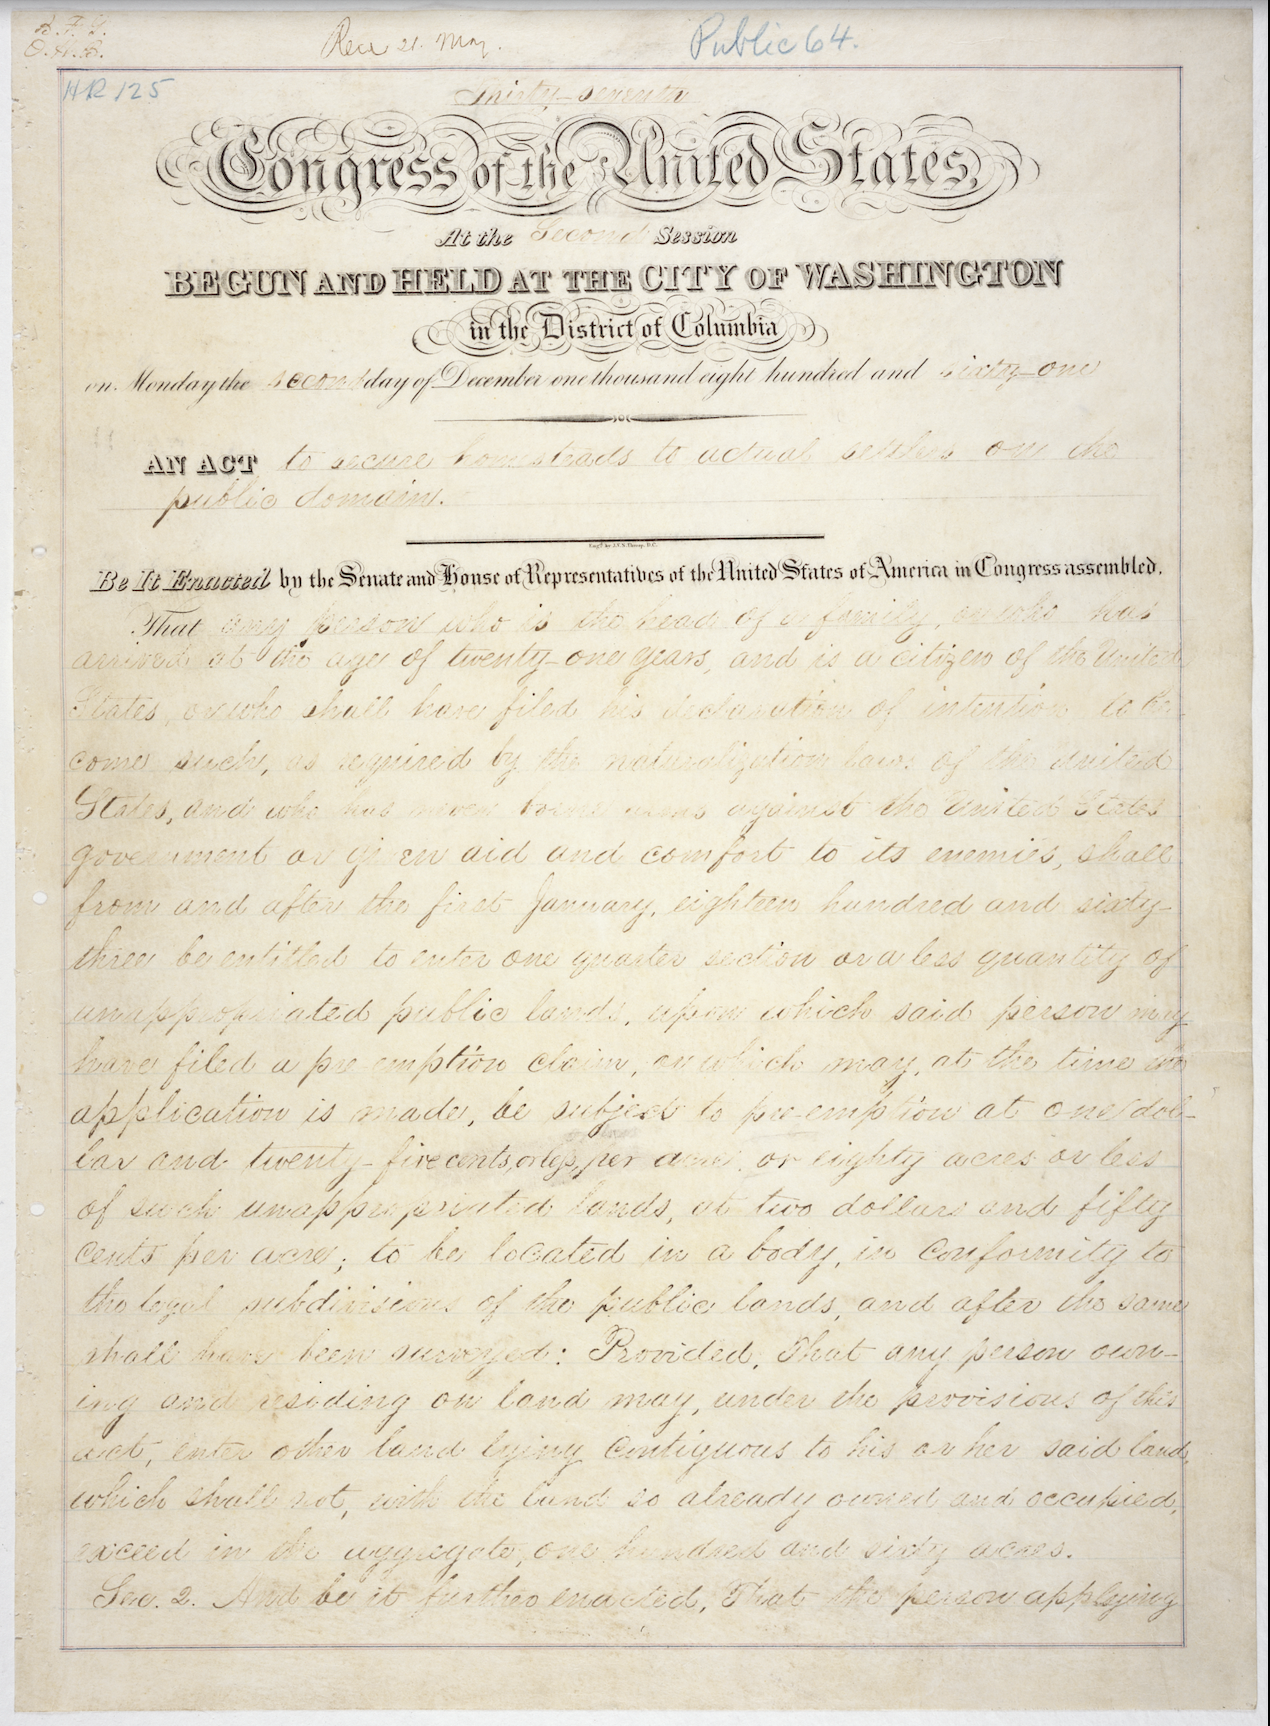 Public 64.
HR 125
Thirty-seventh
Congress of the United States,
At the Second Session
BEGUN AND HELD AT THE CITY OF WASHINGTON
in the District of Columbia
on Monday the second day of December one thousand eight hundred and sixty-one
AN ACT to secure homesteads to actual settlers on the
public domain.
Be It Enacted by the Senate and House of Representatives of the United States of America in Congress assembled.
That any person who is the head of a family, or who has
arrived at the age of twenty-one years, and is a citizen of the United
States, or who shall have filed his declaration of intention to be-
come such, as required by the naturalization laws of the United
States, and who has never borne arms against the United States
government or given aid and comfort to its enemies, shall
from and after the first January, eighteen hundred and sixty-
three be entitled to enter one quarter section or a less quantity of
unappropriated public lands, upon which said person may
have filed a pre emption claim, or which may, at the time the
application is made, be subject to pre-emption at one dol-
lar and twenty-five cents, or less, per acre; or eighty acres or less
of such unappropriated lands, at two dollars and fifty
cents per acre; to be located in a body, in conformity to
the legal subdivisions of the public lands, and after the same
shall have been surveyed: Provided, That any person own-
ing and residing on land may, under the provisions of this
act, enter other land lying contiguous to his or her said land,
which shall not, with the land so already owned and occupied,
exceed in the aggregate one hundred and sixty acres.
Sec. 2. And be it further enacted, That the person applying